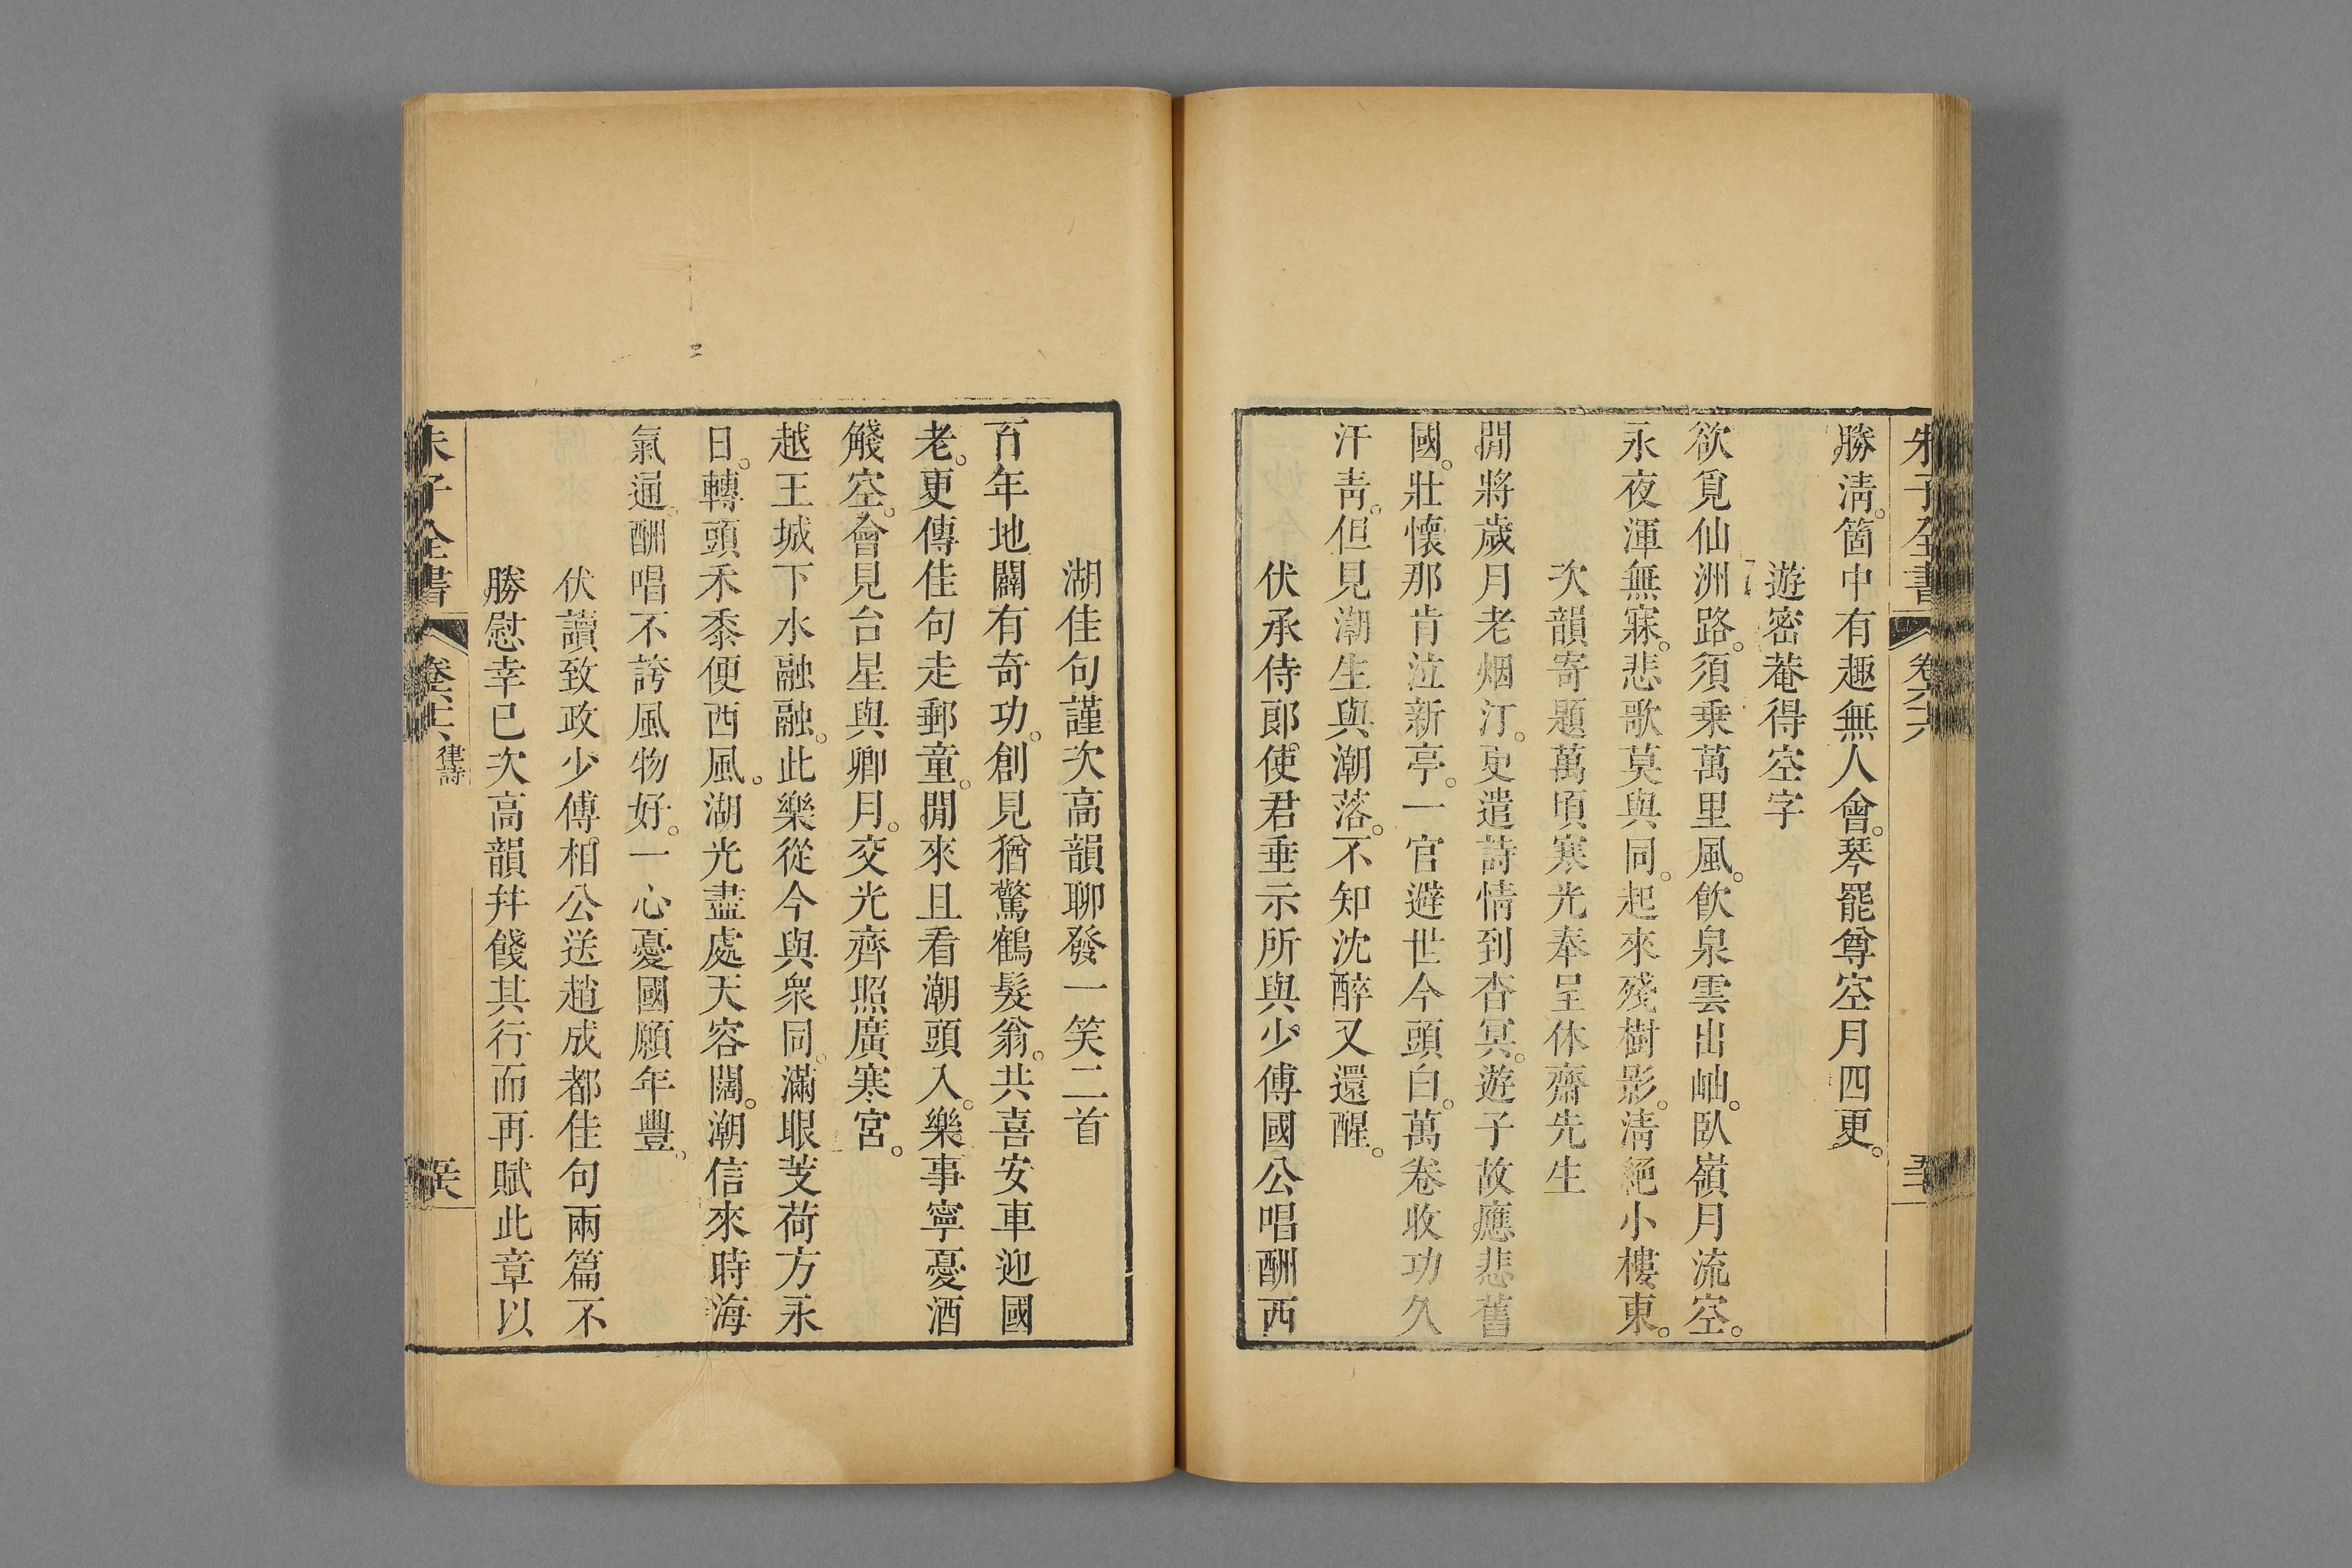 朱子全書 卷六六
勝淸。箇中有趣無人會。琴罷尊空月四更。
遊密菴得空字
欲覓仙洲路。須乗萬里風。飮泉雲出岫。臥嶺月流空。
永夜渾無寐。悲歌莫與同。起來殘樹影。淸絕小樓東。
次韻寄題萬頃寒光奉呈休齋先生
閒將歲月老烟汀。更遣詩情到杳冥。遊子故應悲舊
國。壯懷那肯泣新亭。一官避世今頭白。萬卷收功久
汗靑。但見潮生與潮落。不知沈醉又還醒。
伏承侍郞使君垂示所與少傅國公唱酬西
湖佳句謹次高韻聊發一笑二首
百年地闢有奇功。創見猶驚鶴髮翁。共喜安車迎國
老。更傳佳句走郵童。閒來且看潮頭入。樂事寧憂酒
醆空。會見台星與卿月。交光齊照廣寒宮。
越王城下水融融。此樂從今與衆同。滿眼芰荷方永
日。轉頭禾黍便西風。湖光盡處天容闊。潮信來時海
氣通。酬唱不誇風物好。一心憂國願年豐。
伏讀致政少傅相公送趙成都佳句兩篇不
勝慰幸已次高韻幷餞其行而再賦此章以
朱子全書 卷六六 律詩